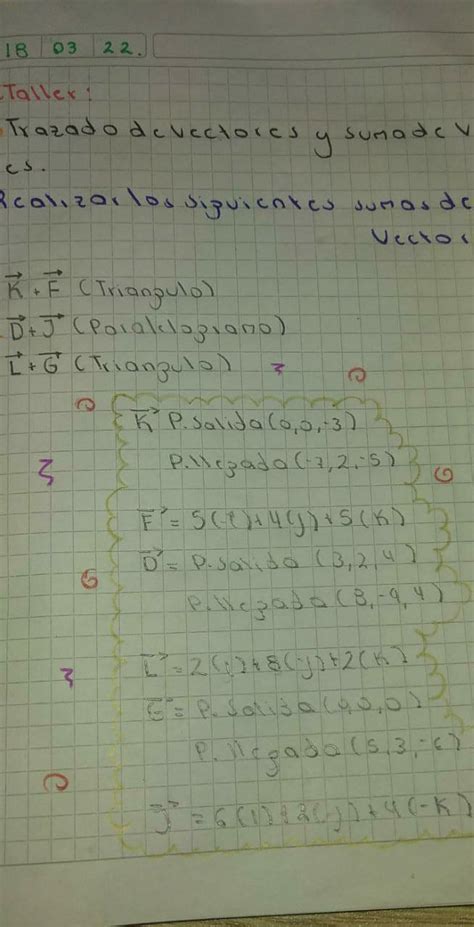 18 03 22.
Taller:
Trazado de vectores y suma de v
es.
Realizar los siguientes sumas de
Vector
K + F (Triangulo)
D + J (Paralelogramo)
L + G (Triangulo)
K P. Salida (0,0,-3)
P. llegada (-3,2,-5)
F = 5(-i)+4(j)+5(K)
D = P. Salida (3,2,4)
P. llegada (8,-9,4)
L = 2( )+8(-j)+2(K)
G = P. Salida (0,0,0)
P. llegada (5,3,-6)
J = 6(i)+3(j)+4(-K)